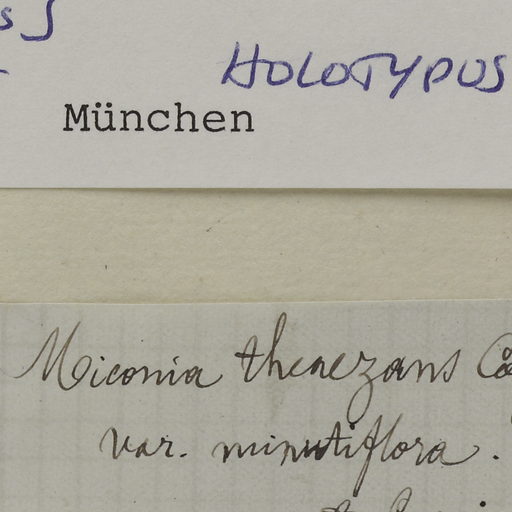 HOLOTYPUS
München
Miconia theaezans
var. minutiflora.